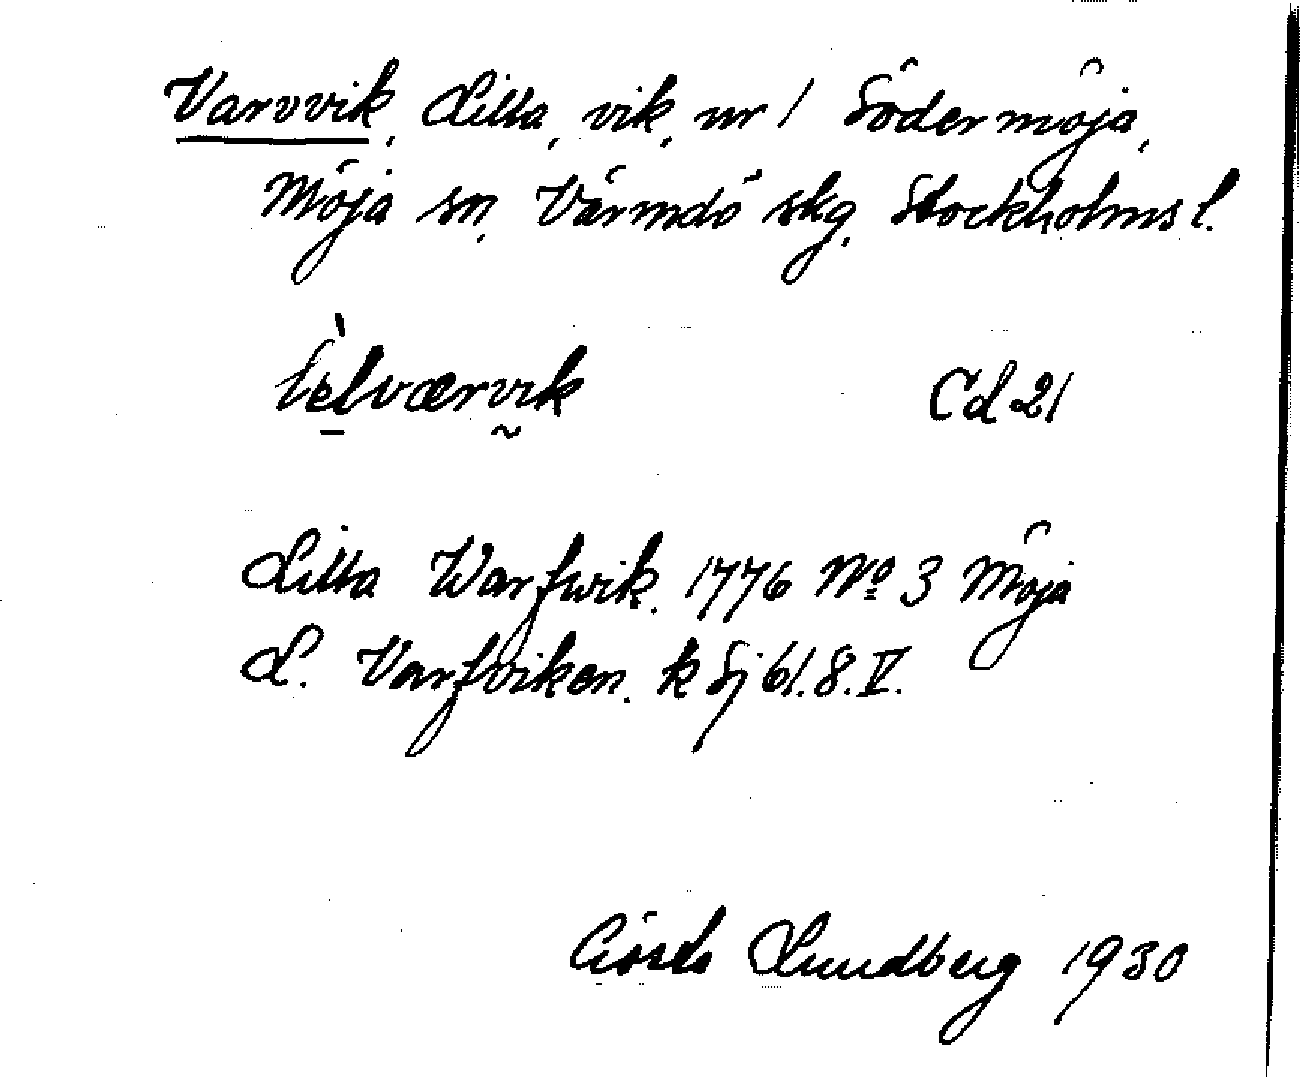 Varvvik, Lilla, vik, nr 1 Södermöja,
Möja sn, Värmdö skg, Stockholms l.
Cd 21
Lilla Warfwik. 1776 No 3 Möja
L. Varfviken. k Sj 61.8.V.
Gösta Lundberg 1930